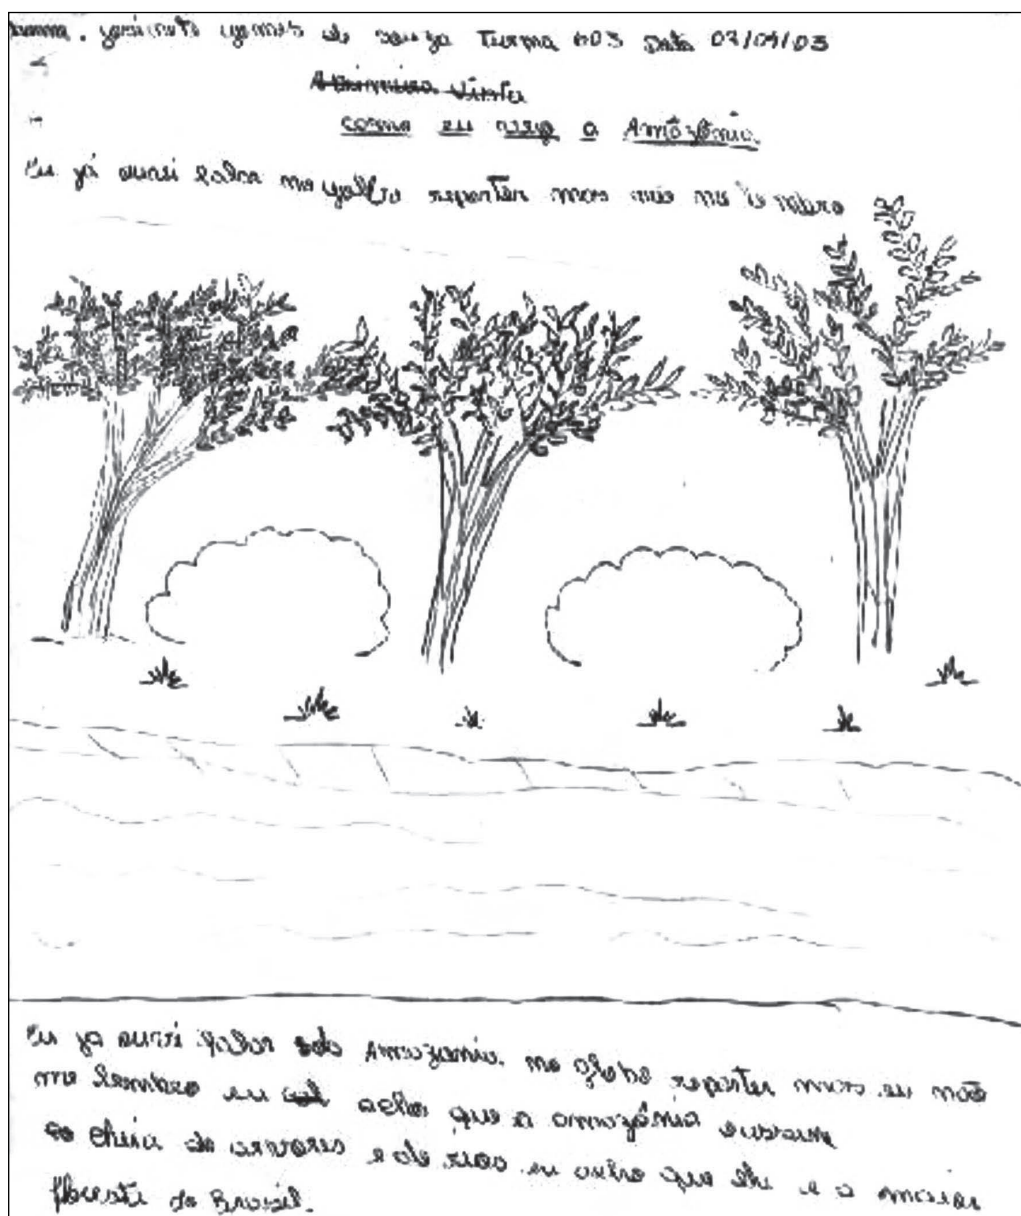 gomes de souza Turma 603 Data 07/04/03
A Primeira Vista
como eu vejo a Amazônia
Eu já ouvi falar no reporter mas não me lembro
Eu ja ouvi falar da Amazonia no globo reporter mas eu não
me lembro eu acho que a amazônia
cheia de arvores e de rios eu acho que ela e a maior
floresta do Brasil.